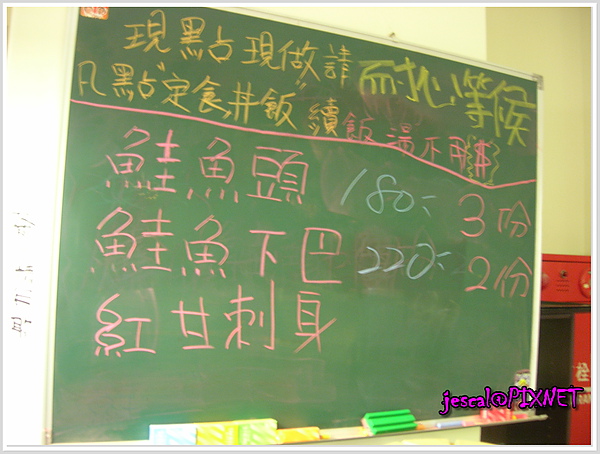 現點現做請耐心等候
凡點"定食,丼飯"續飯湯不用$
鮭魚頭 180: 3份
鮭魚下巴 220: 2份
紅甘刺身
栓
jescal@PIXNET